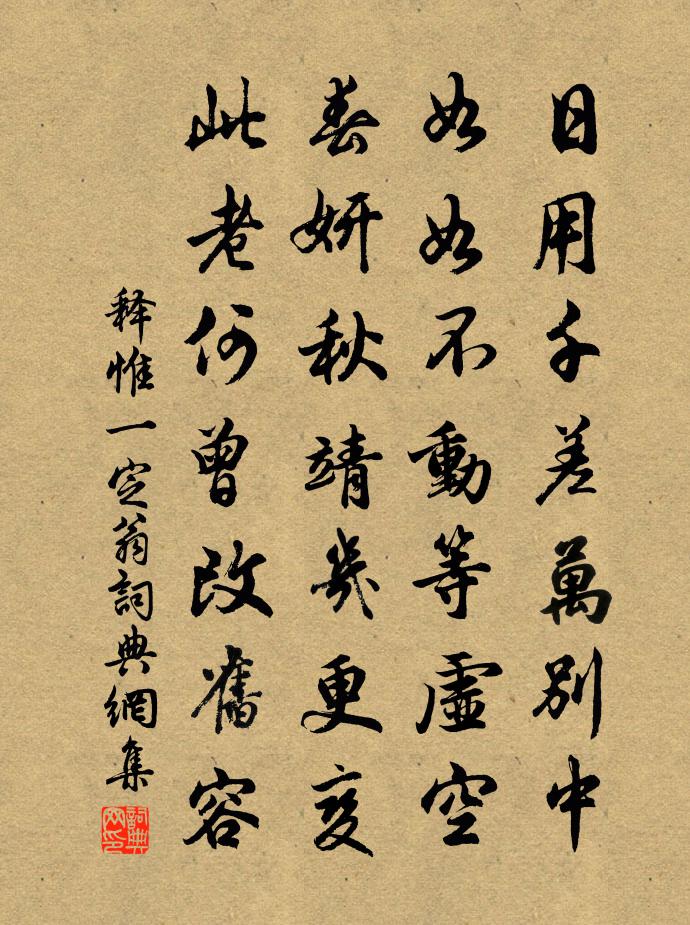 日用千差萬別中
如如不動等虛空
春妍秋靖幾更變
此老何曾改舊容
释惟一定翁詞典網集
詞典
网印